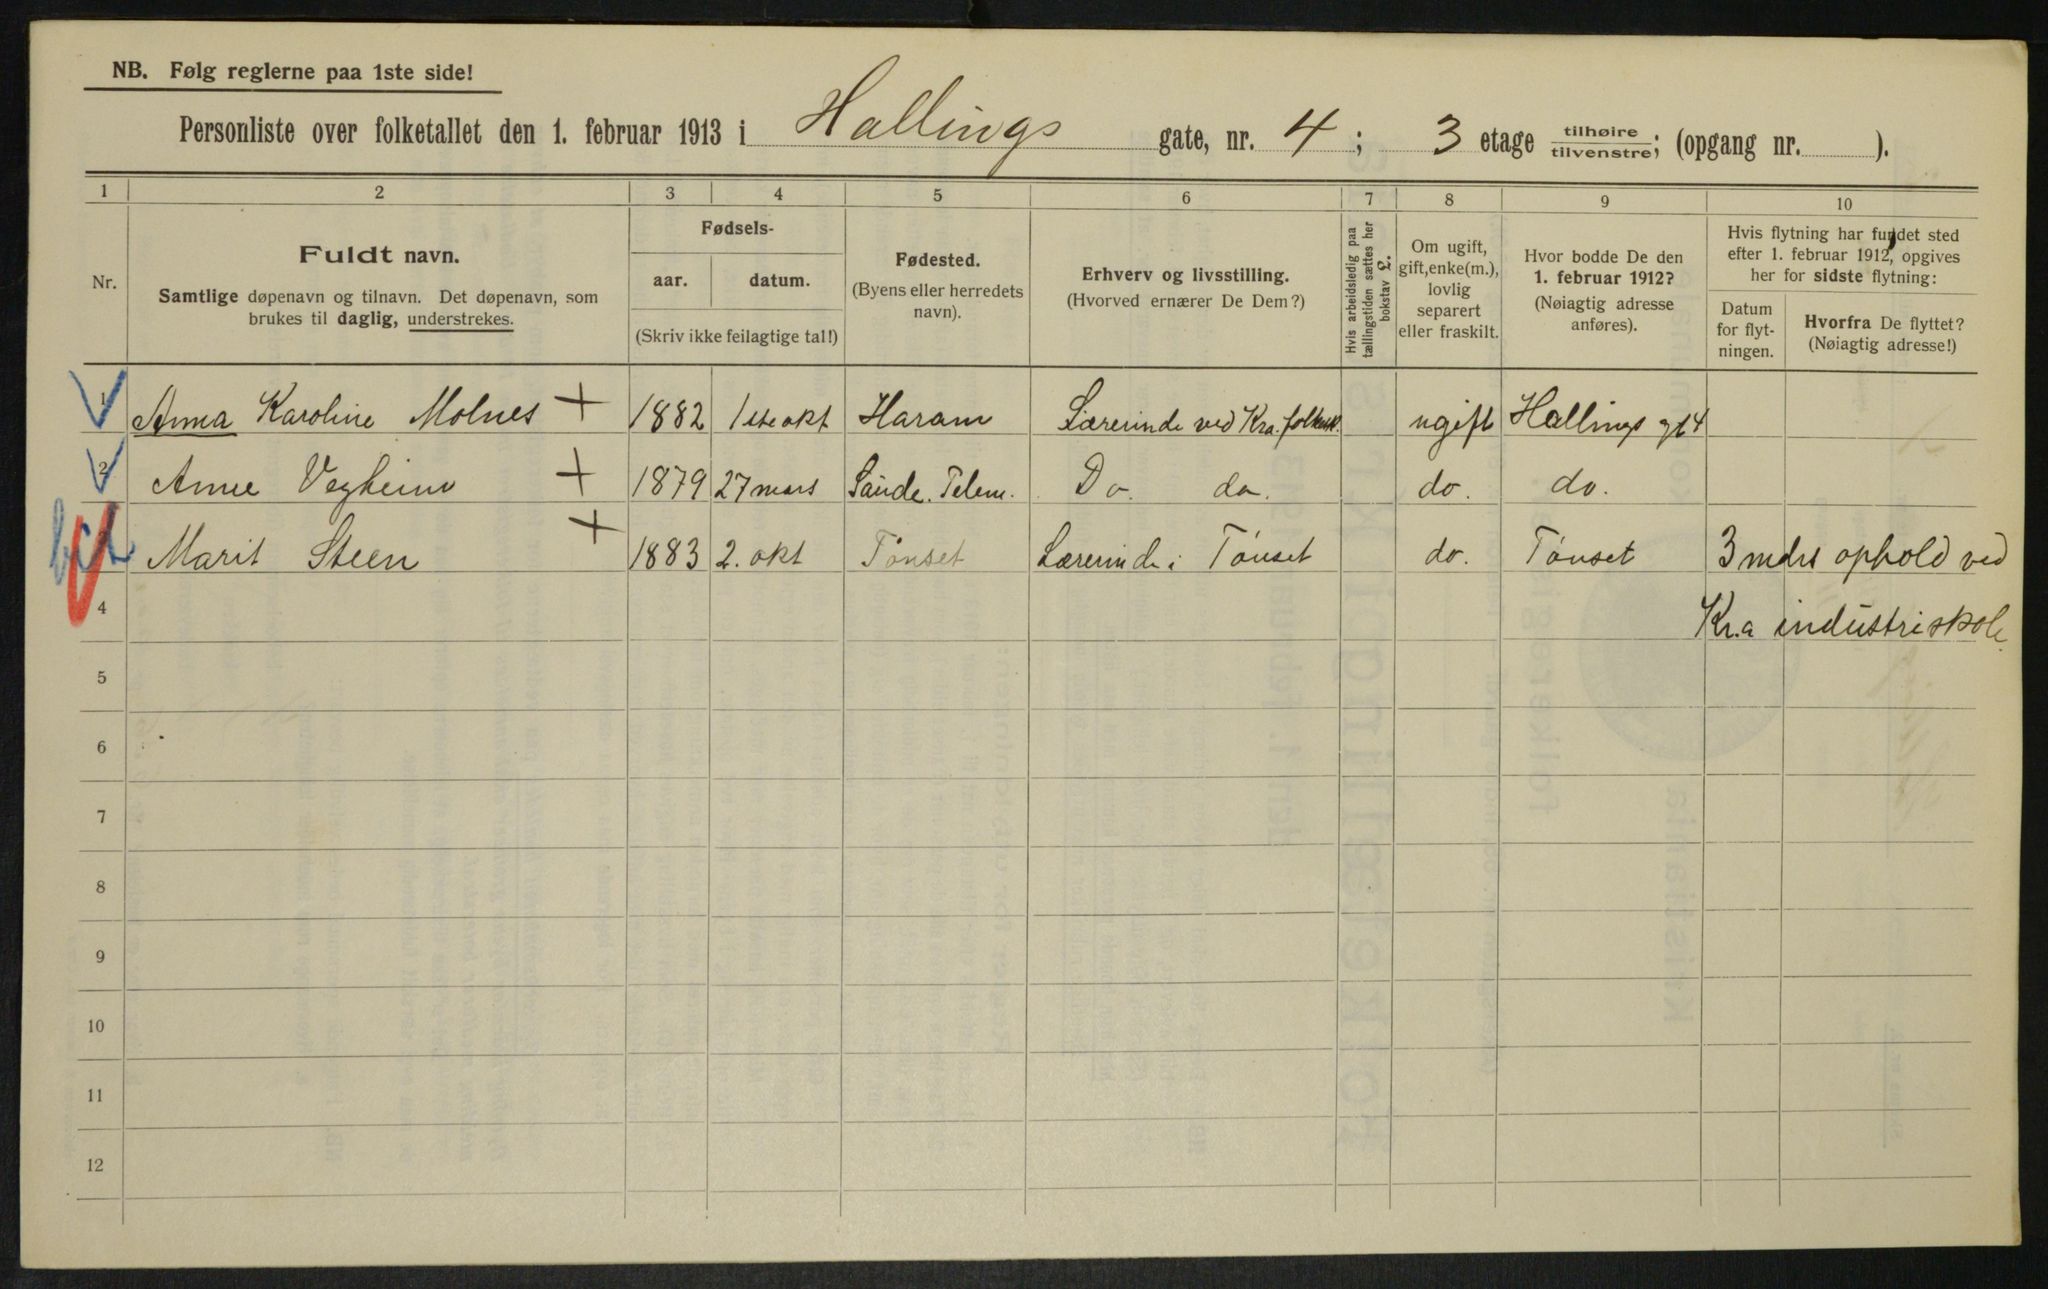 NB. Følg reglerne paa 1ste side!
Personliste over folketallet den 1. februar 1913 i Hallings gate, nr. 4; 3 etage tilhøire/tilvenstre; (opgang nr. ).
1 2 3 4 5 6 7 8 9 10
Nr.
Fuldt navn.
Samtlige døpenavn og tilnavn. Det døpenavn, som
brukes til daglig, understrekes.
Fødsels-
aar.
datum.
(Skriv ikke feilagtige tal!)
Fødested.
(Byens eller herredets
navn).
Erhverv og livsstilling.
(Hvorved ernærer De Dem?)
Hvis arbeidsledig paa
tællingstiden sættes her
bokstav L.
Om ugift,
gift, enke(m.),
lovlig
separert
eller fraskilt.
Hvor bodde De den
1. februar 1912?
(Nøiagtig adresse
anføres).
Hvis flytning har fundet sted
efter 1. februar 1912, opgives
her for sidste flytning:
Datum
for flyt-
ningen.
Hvorfra De flyttet?
(Nøiagtig adresse!)
1 Anna Karoline Molnes + 1882 1ste okt Haram Lærerinde ved Kra. folkesk. ugift Hallings gt 4
2 Anne Vegheim + 1879 27 mars Saude. Telem. Do. do. do. do.
3 Marit Steen + 1883 2. okt Tønset Lærerinde i Tønset do. Tønset 3 mdrs ophold ved
4 Kr.a industriskole
5
6
7
8
9
10
11
12